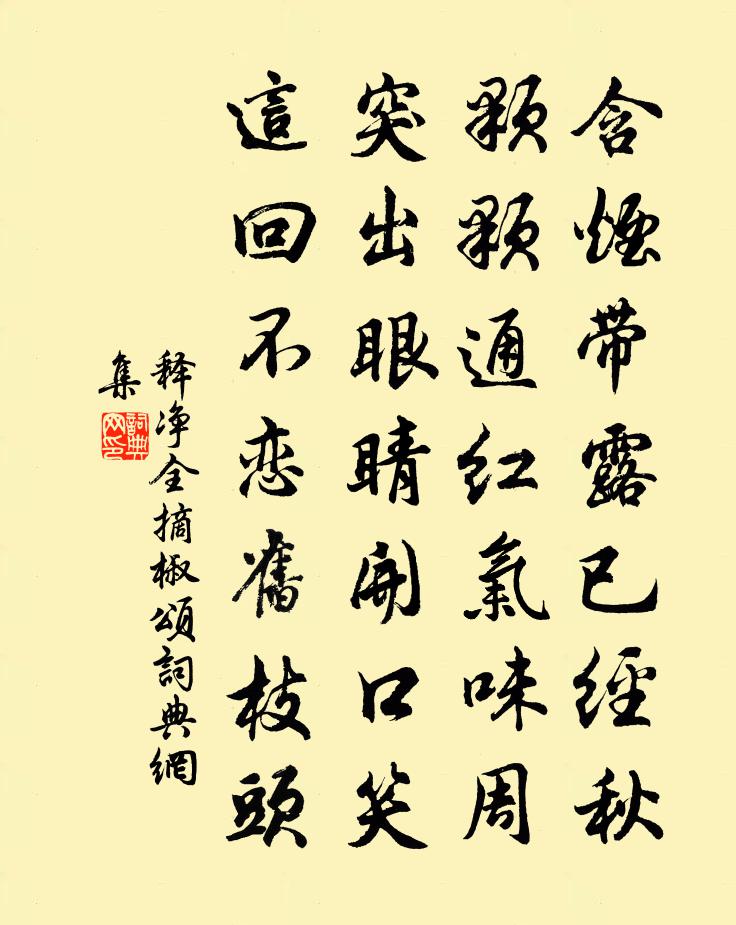 含煙帶露已經秋
顆顆通红氣味周
突出眼睛開口笑
這回不恋舊枝頭
释净全摘椒頌詞典網
集
詞典
网印